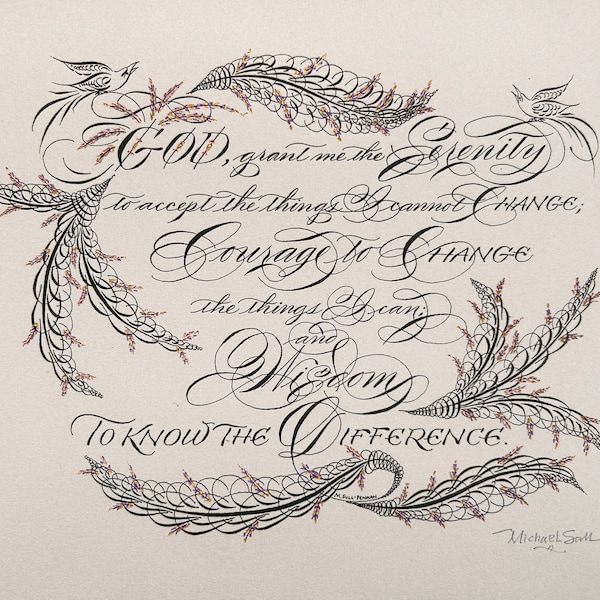 GOD, grant me the Serenity
to accept the things I cannot CHANGE;
Courage to CHANGE
the things I can;
and
Wisdom
TO KNOW THE DIFFERENCE.
M. SULL · PENMAN
Michael Sull